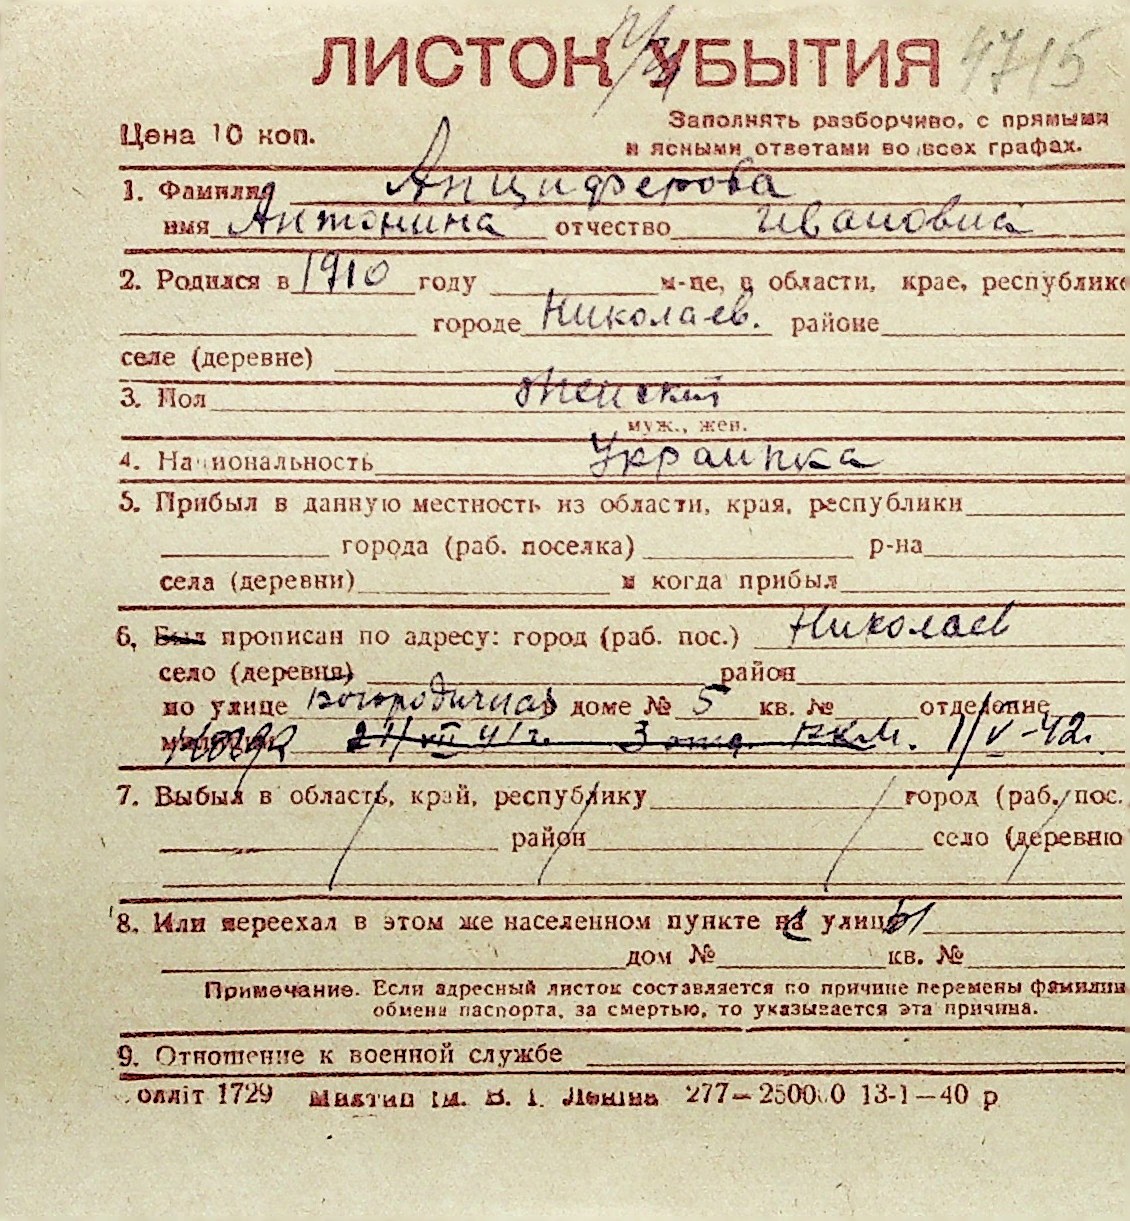 ЛИСТОК УБЫТИЯ 4715
Цена 10 коп.
Заполнять разборчиво, с прямыми
и ясными ответами во всех графах.
1. Фамилия Анциферова
имя Антонина отчество Ивановна
2. Родился в 1910 году м-це, в области, крае, республике
городе Николаев. районе
селе (деревне)
3. Пол Женский
муж., жен.
4. Национальность Украинка
5. Прибыл в данную местность из области, края, республики
города (раб. поселка) р-на
села (деревни) и когда прибыл
6. Был прописан по адресу: город (раб. пос.) Николаев
село (деревня) район
по улице Богородичная доме № 5 кв. № отделение
милиции 24/VII 41г. 3 отд. РКМ. 1/V-42г.
7. Выбыл в область, край, республику город (раб. пос.
район село (деревню
8. Или переехал в этом же населенном пункте с улицы
дом № кв. №
Примечание. Если адресный листок составляется по причине перемены фамилии
обмена паспорта, за смертью, то указывается эта причина.
9. Отношение к военной службе
олліт 1729 Миктип ім. В. І. Леніна 277—250000 13-1—40 р